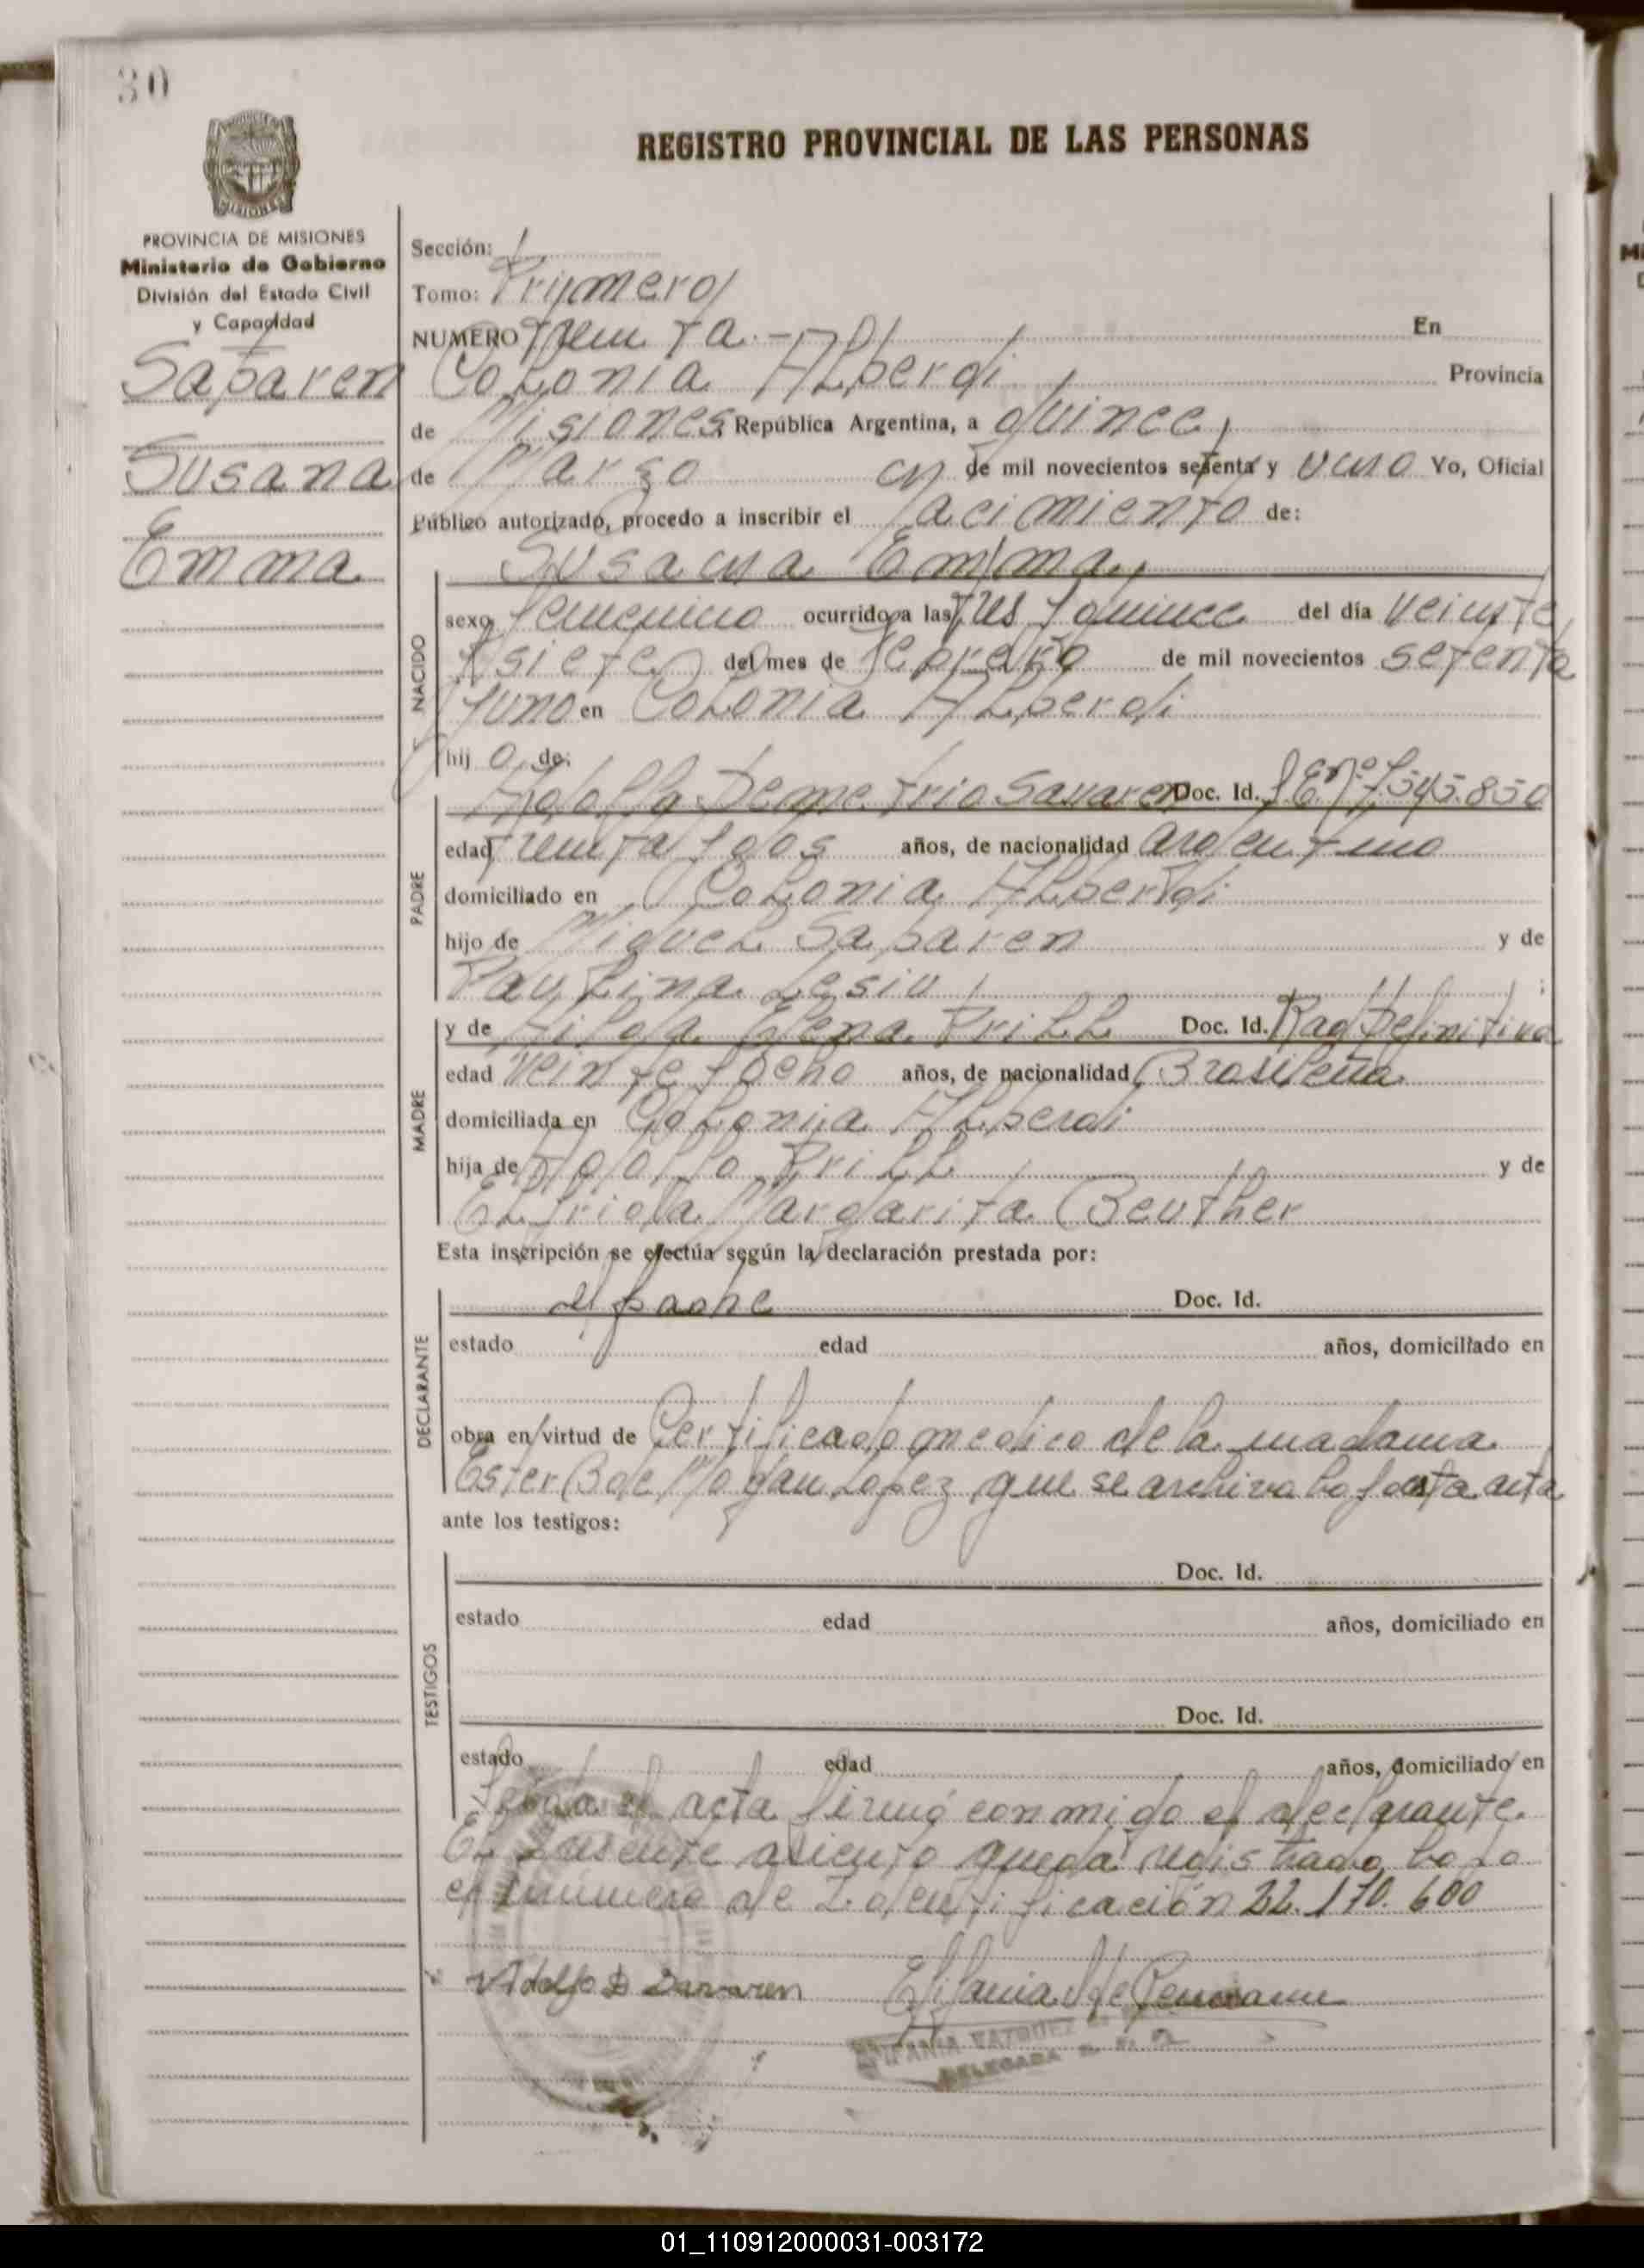 30
REGISTRO PROVINCIAL DE LAS PERSONAS
PROVINCIA DE MISIONES
Ministerio de Gobierno
División del Estado Civil
y Capacidad
Sabaren
Susana
Emma
Sección:
Tomo: Primero
NUMERO Treinta.- En
Colonia Alberdi Provincia
de Misiones República Argentina, a quince
de Marzo de mil novecientos setenta y uno Yo, Oficial
Público autorizado, procedo a inscribir el nacimiento de:
Susana Emma
NACIDO
sexo femenino ocurrido a las tres y quince del día veinte
y siete del mes de febrero de mil novecientos setenta
y uno en Colonia Alberdi
hij a de:
PADRE
Adolfo Demetrio Savaren Doc. Id. L Enº 7.545.850
edad treinta y dos años, de nacionalidad argentino
domiciliado en Colonia Alberdi
hijo de Miguel Sabaren y de
Paulina Lesiu ;
MADRE
y de Hilda Elena Prill Doc. Id. Rad Definitiva
edad Veinte y ocho años, de nacionalidad Brasileña
domiciliada en Colonia Alberdi
hija de Adolfo Prill y de
Elfrida Margarita Beuther
Esta inscripción se efectúa según la declaración prestada por:
DECLARANTE
el padre Doc. Id.
estado edad años, domiciliado en
obra en virtud de Certificado medico de la madama
Ester B de Lopez que se archiva bajo esta acta
ante los testigos:
TESTIGOS
Doc. Id.
estado edad años, domiciliado en
Doc. Id.
estado edad años, domiciliado en
Leida el acta firmó conmigo el declarante.
El presente asiento queda registrado bajo
el numero de Identificación 22.170.600
Adolfo D Savaren
DELEGADA
01_110912000031-003172